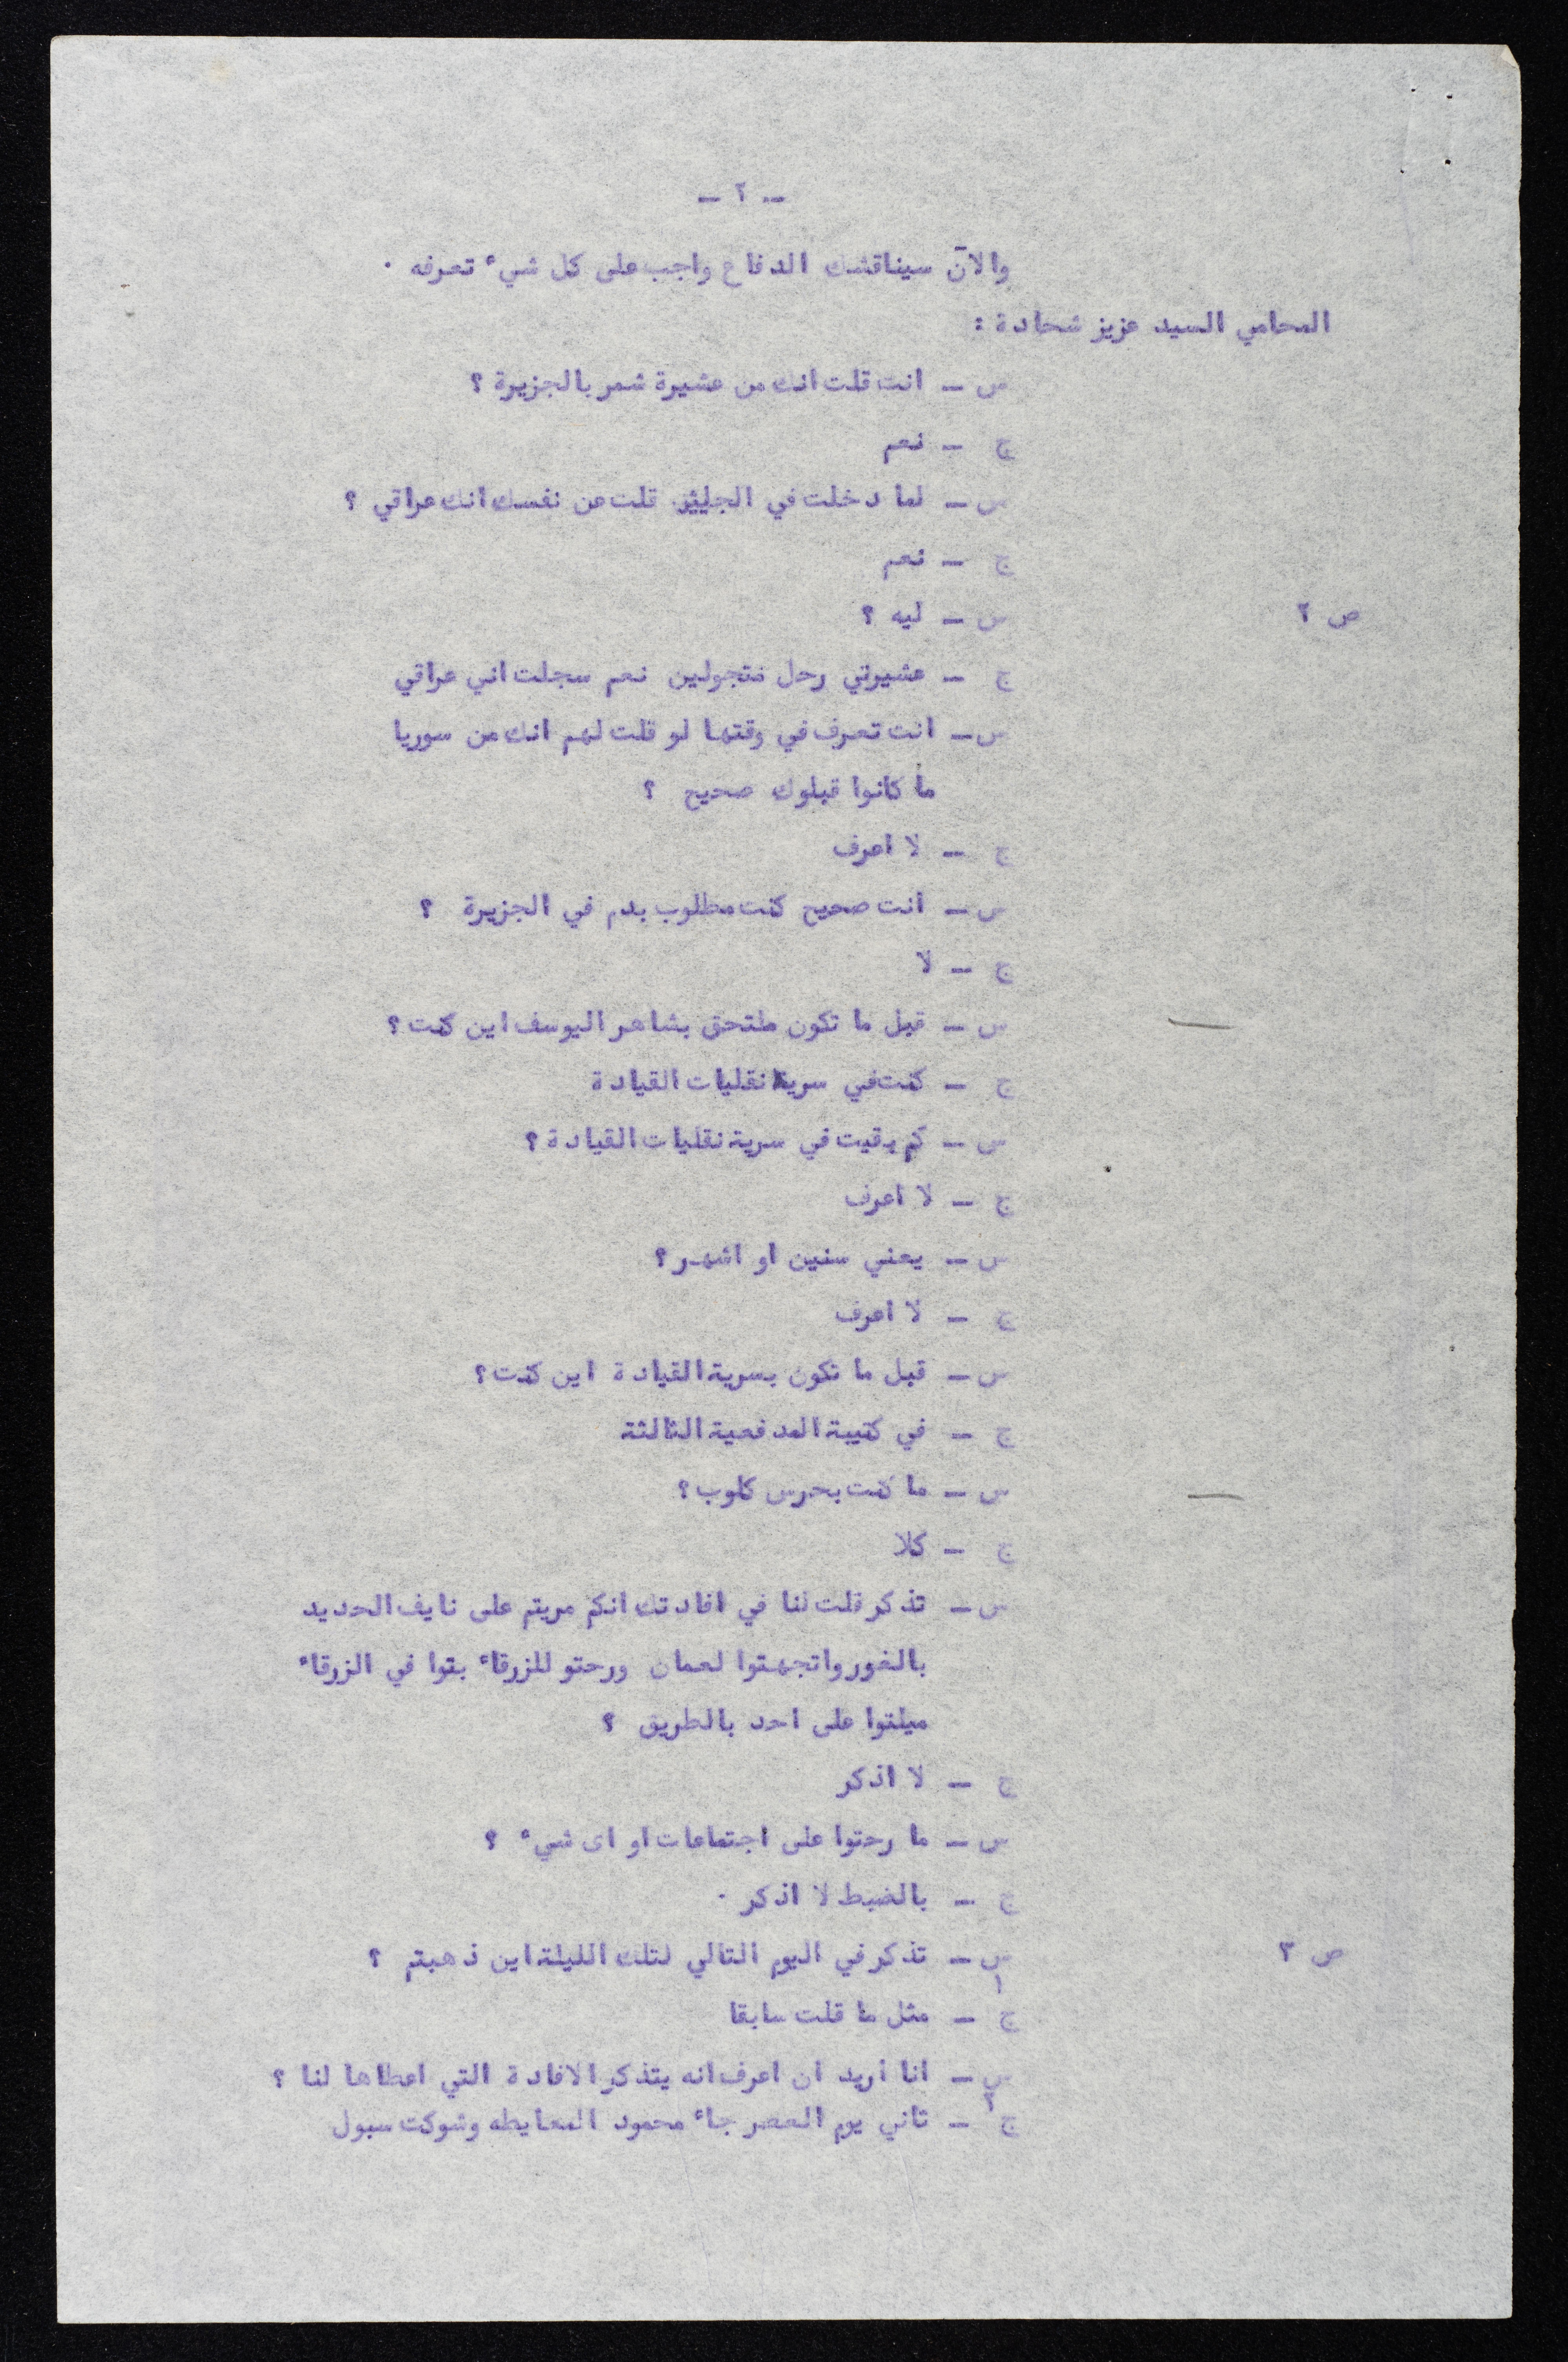 - ٢ -
والآن سيناقشك الدفاع واجب على كل شيء تعرفه .
المحامي السيد عزيز شحادة :
س - انت قلت انك من عشيرة شمر بالجزيرة ؟
ج - نعم
س - لما دخلت في الجيش قلت عن نفسك انك عراقي ؟
ج - نعم
ص ٢ س - ليه ؟
ج - عشيرتي رحل متجولين نعم سجلت اني عراقي
س - انت تعرف في وقتها لو قلت لهم انك من سوريا
ما كانوا قبلوك صحيح ؟
ج - لا اعرف
س - انت صحيح كنت مطلوب بدم في الجزيرة ؟
ج - لا
س - قبل ما تكون ملتحق بشاهر اليوسف اين كنت ؟
ج - كنت في سرية نقليات القيادة
س - كم بقيت في سرية نقليات القيادة ؟
ج - لا اعرف
س - يعني سنين او اشهر ؟
ج - لا اعرف
س - قبل ما تكون بسرية القيادة اين كنت ؟
ج - في كتيبة المدفعية الثالثة
س - ما كنت بحرس كلوب ؟
ج - كلا
س - تذكر قلت لنا في افادتك انكم مريتم على نايف الحديد
بالغور واتجهتوا لعمان ورحتو للزرقاء بقوا في الزرقاء
ميلتوا على احد بالطريق ؟
ج - لا اذكر
س - ما رحتوا على اجتماعات او اى شيء ؟
ج - بالضبط لا اذكر .
ص ٣ س - تذكر في اليوم التالي لتلك الليلة اين ذهبتم ؟
١
ج - مثل ما قلت سابقا
س - انا أريد ان اعرف انه يتذكر الافادة التي اعطاها لنا ؟
٢
ج - ثاني يوم العصر جاء محمود المعايطه وشوكت سبول